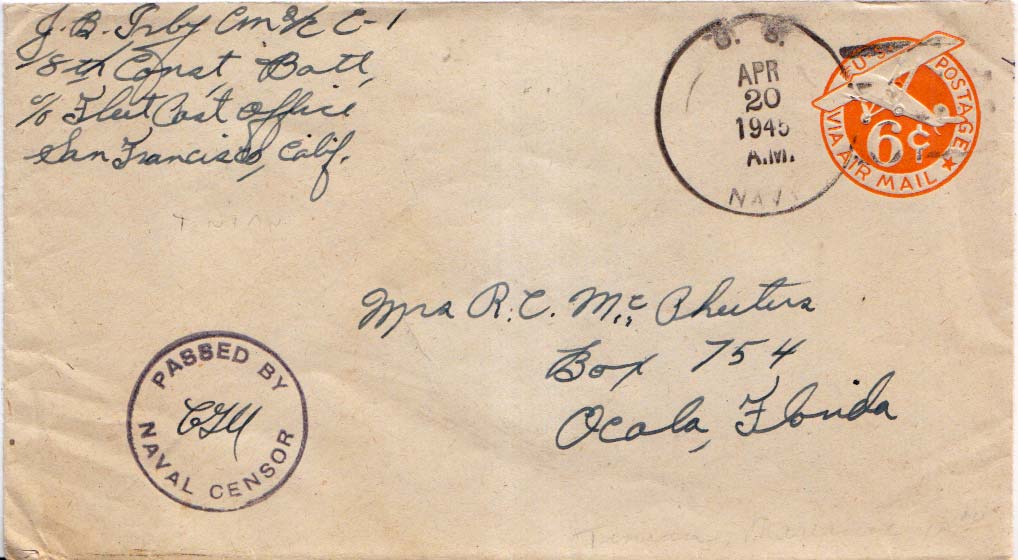 J. B. Irby Cm 2/c C-1
18th Const. Batt,
c/o Fleet Post Office
San Francisco, Calif.
U. S.
APR
20
1945
A.M.
NAVY
U.S. POSTAGE
6¢
VIA AIR MAIL
TINIAN
Mrs R. C. Mc Pheeters
Box 754
Ocala, Florida
PASSED BY
NAVAL CENSOR